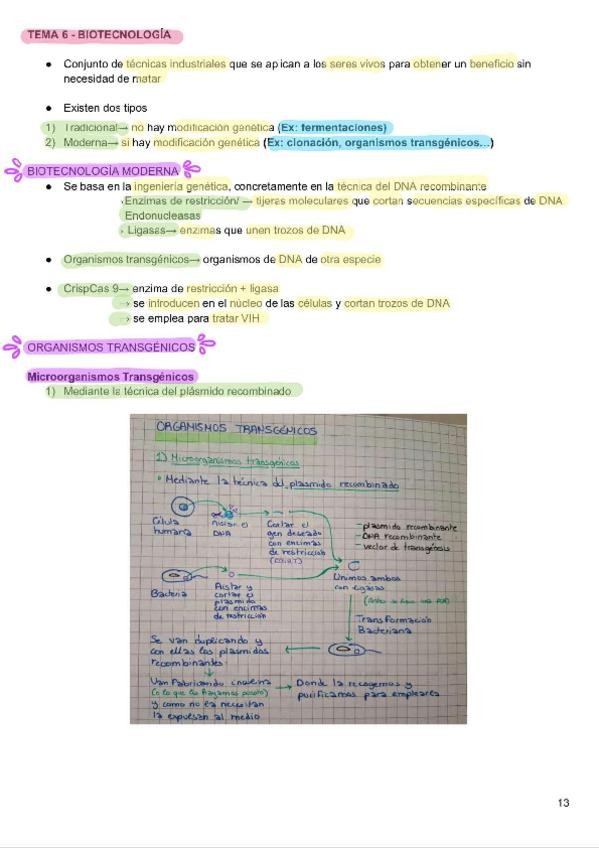 TEMA 6 - BIOTECNOLOGÍA
● Conjunto de técnicas industriales que se aplican a los seres vivos para obtener un beneficio sin
necesidad de matar
● Existen dos tipos
1) Tradicional→ no hay modificación genética (Ex: fermentaciones)
2) Moderna→ si hay modificación genética (Ex: clonación, organismos transgénicos…)
BIOTECNOLOGÍA MODERNA
● Se basa en la ingeniería genética, concretamente en la técnica del DNA recombinante
Enzimas de restricción/ → tijeras moleculares que cortan secuencias específicas de DNA
Endonucleasas
Ligasas→ enzimas que unen trozos de DNA
● Organismos transgénicos→ organismos de DNA de otra especie
● CrispCas 9→ enzima de restricción + ligasa
→ se introducen en el núcleo de las células y cortan trozos de DNA
→ se emplea para tratar VIH
ORGANISMOS TRANSGÉNICOS
Microorganismos Transgénicos
1) Mediante la técnica del plásmido recombinado
ORGANISMOS TRANSGÉNICOS
1) Microorganismos transgénicos
Mediante la técnica del plasmido recombinado
Célula
humana
Aislar el
DNA
Cortar el
gen deseado
con enzimas
de restricción
- plasmido recombinante
- DNA recombinante
- vector de transgénesis
Bacteria
Aislar y
cortar el
plasmido
con enzimas
de restricción
Unimos ambos
con ligasas
Transformación
Bacteriana
Se van duplicando y
con ellas los plasmidos
recombinantes
Van Fabricando
y como no la necesitan
la expulsan al medio
→ Donde la recogemos y
purificamos para emplearla
13